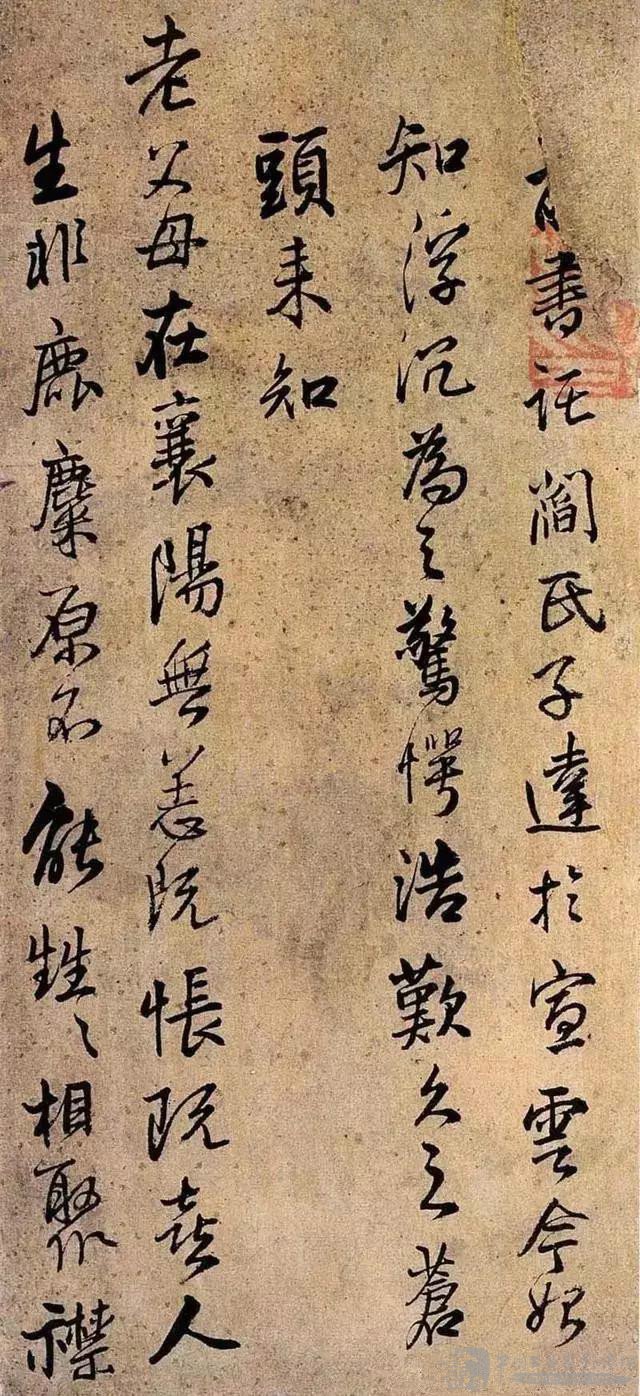 書託閻氏子達於宣雲今始
知浮沉為之驚愕浩歎久之蒼
頭来知
老父母在襄陽無恙既悵既喜人
生非鹿麋原不能甡〻相聚襟